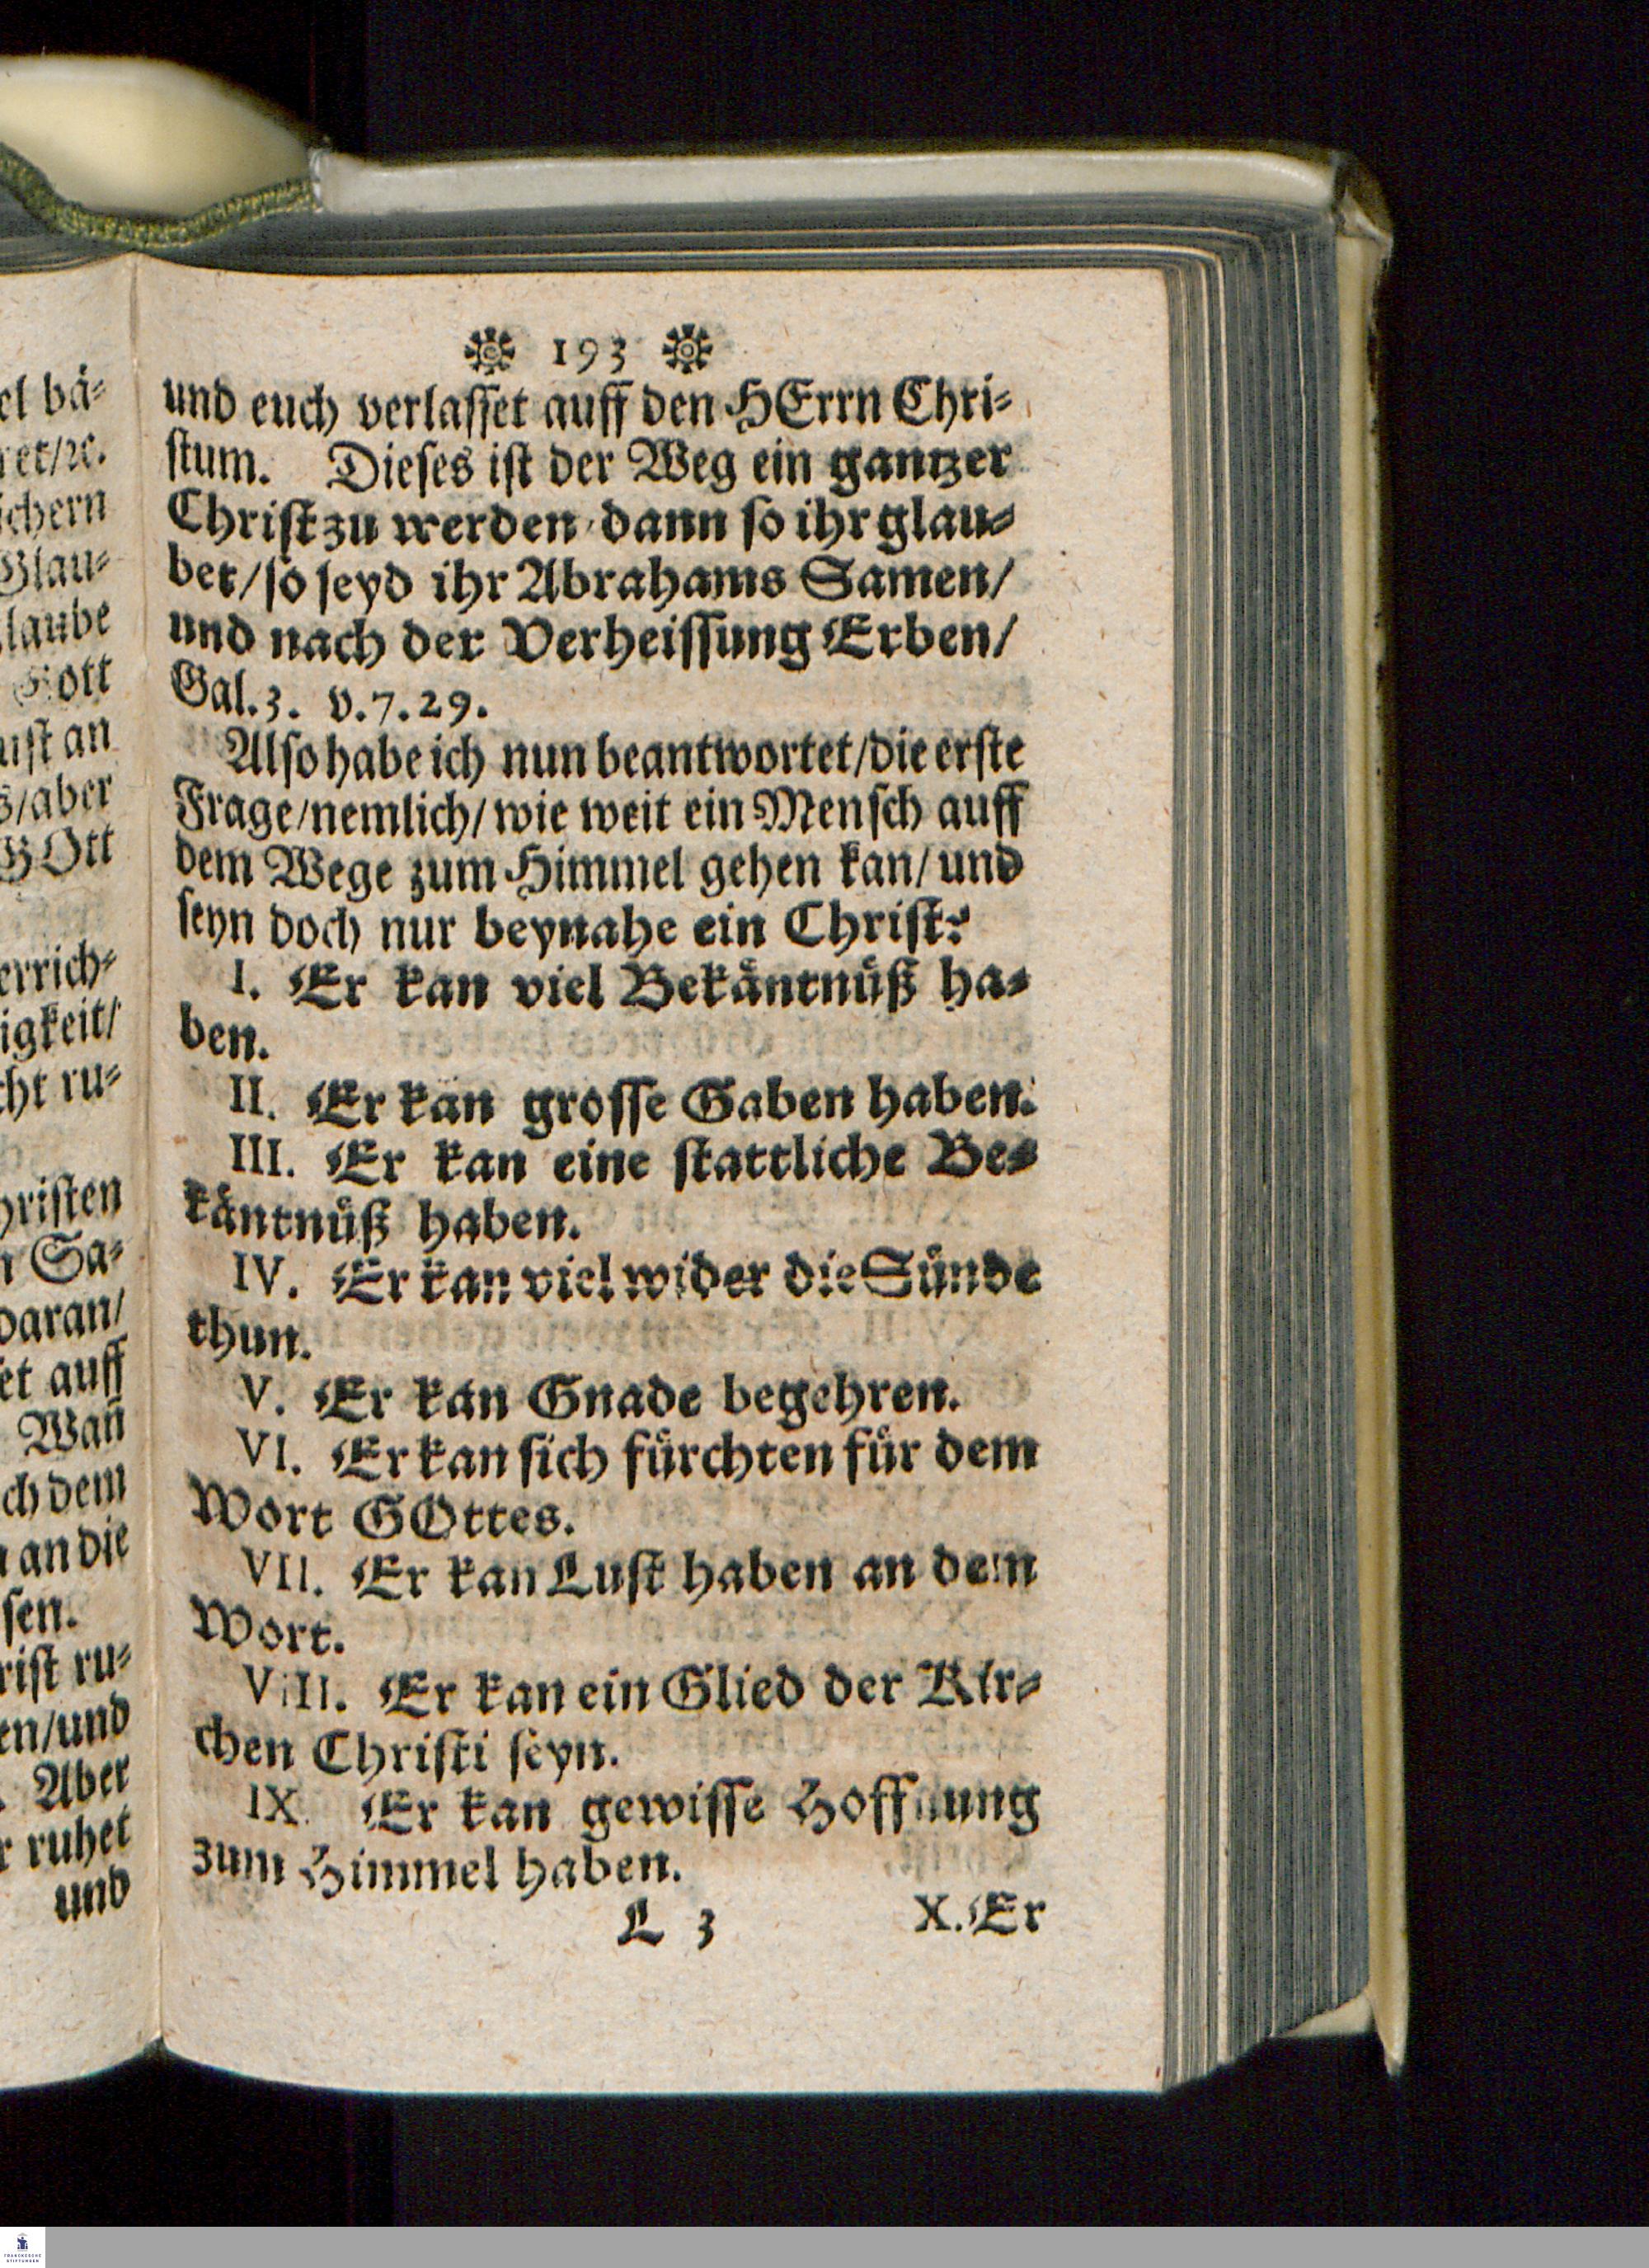 193
und euch verlasset auff den HErrn Chri-
stum. Dieses ist der Weg ein gantzer
Christ zu werden / dann so ihr glau-
bet / so seyd ihr Abrahams Samen /
und nach der Verheissung Erben /
Gal. 3. v. 7. 29.
Also habe ich nun beantwortet / die erste
Frage / nemlich / wie weit ein Mensch auff
dem Wege zum Himmel gehen kan / und
seyn doch nur beynahe ein Christ?
I. Er kan viel Bekåntnůß ha-
ben.
II. Er kan grosse Gaben haben.
III. Er kan eine stattliche Be-
kåntnůß haben.
IV. Er kan viel wider die Sůnde
thun.
V. Er kan Gnade begehren.
VI. Er kan sich fůrchten fůr dem
Wort GOttes.
VII. Er kan Lust haben an dem
Wort.
VIII. Er kan ein Glied der Kir-
chen Christi seyn.
IX. Er kan gewisse Hoffnung
zum Himmel haben.
L 3 X. Er